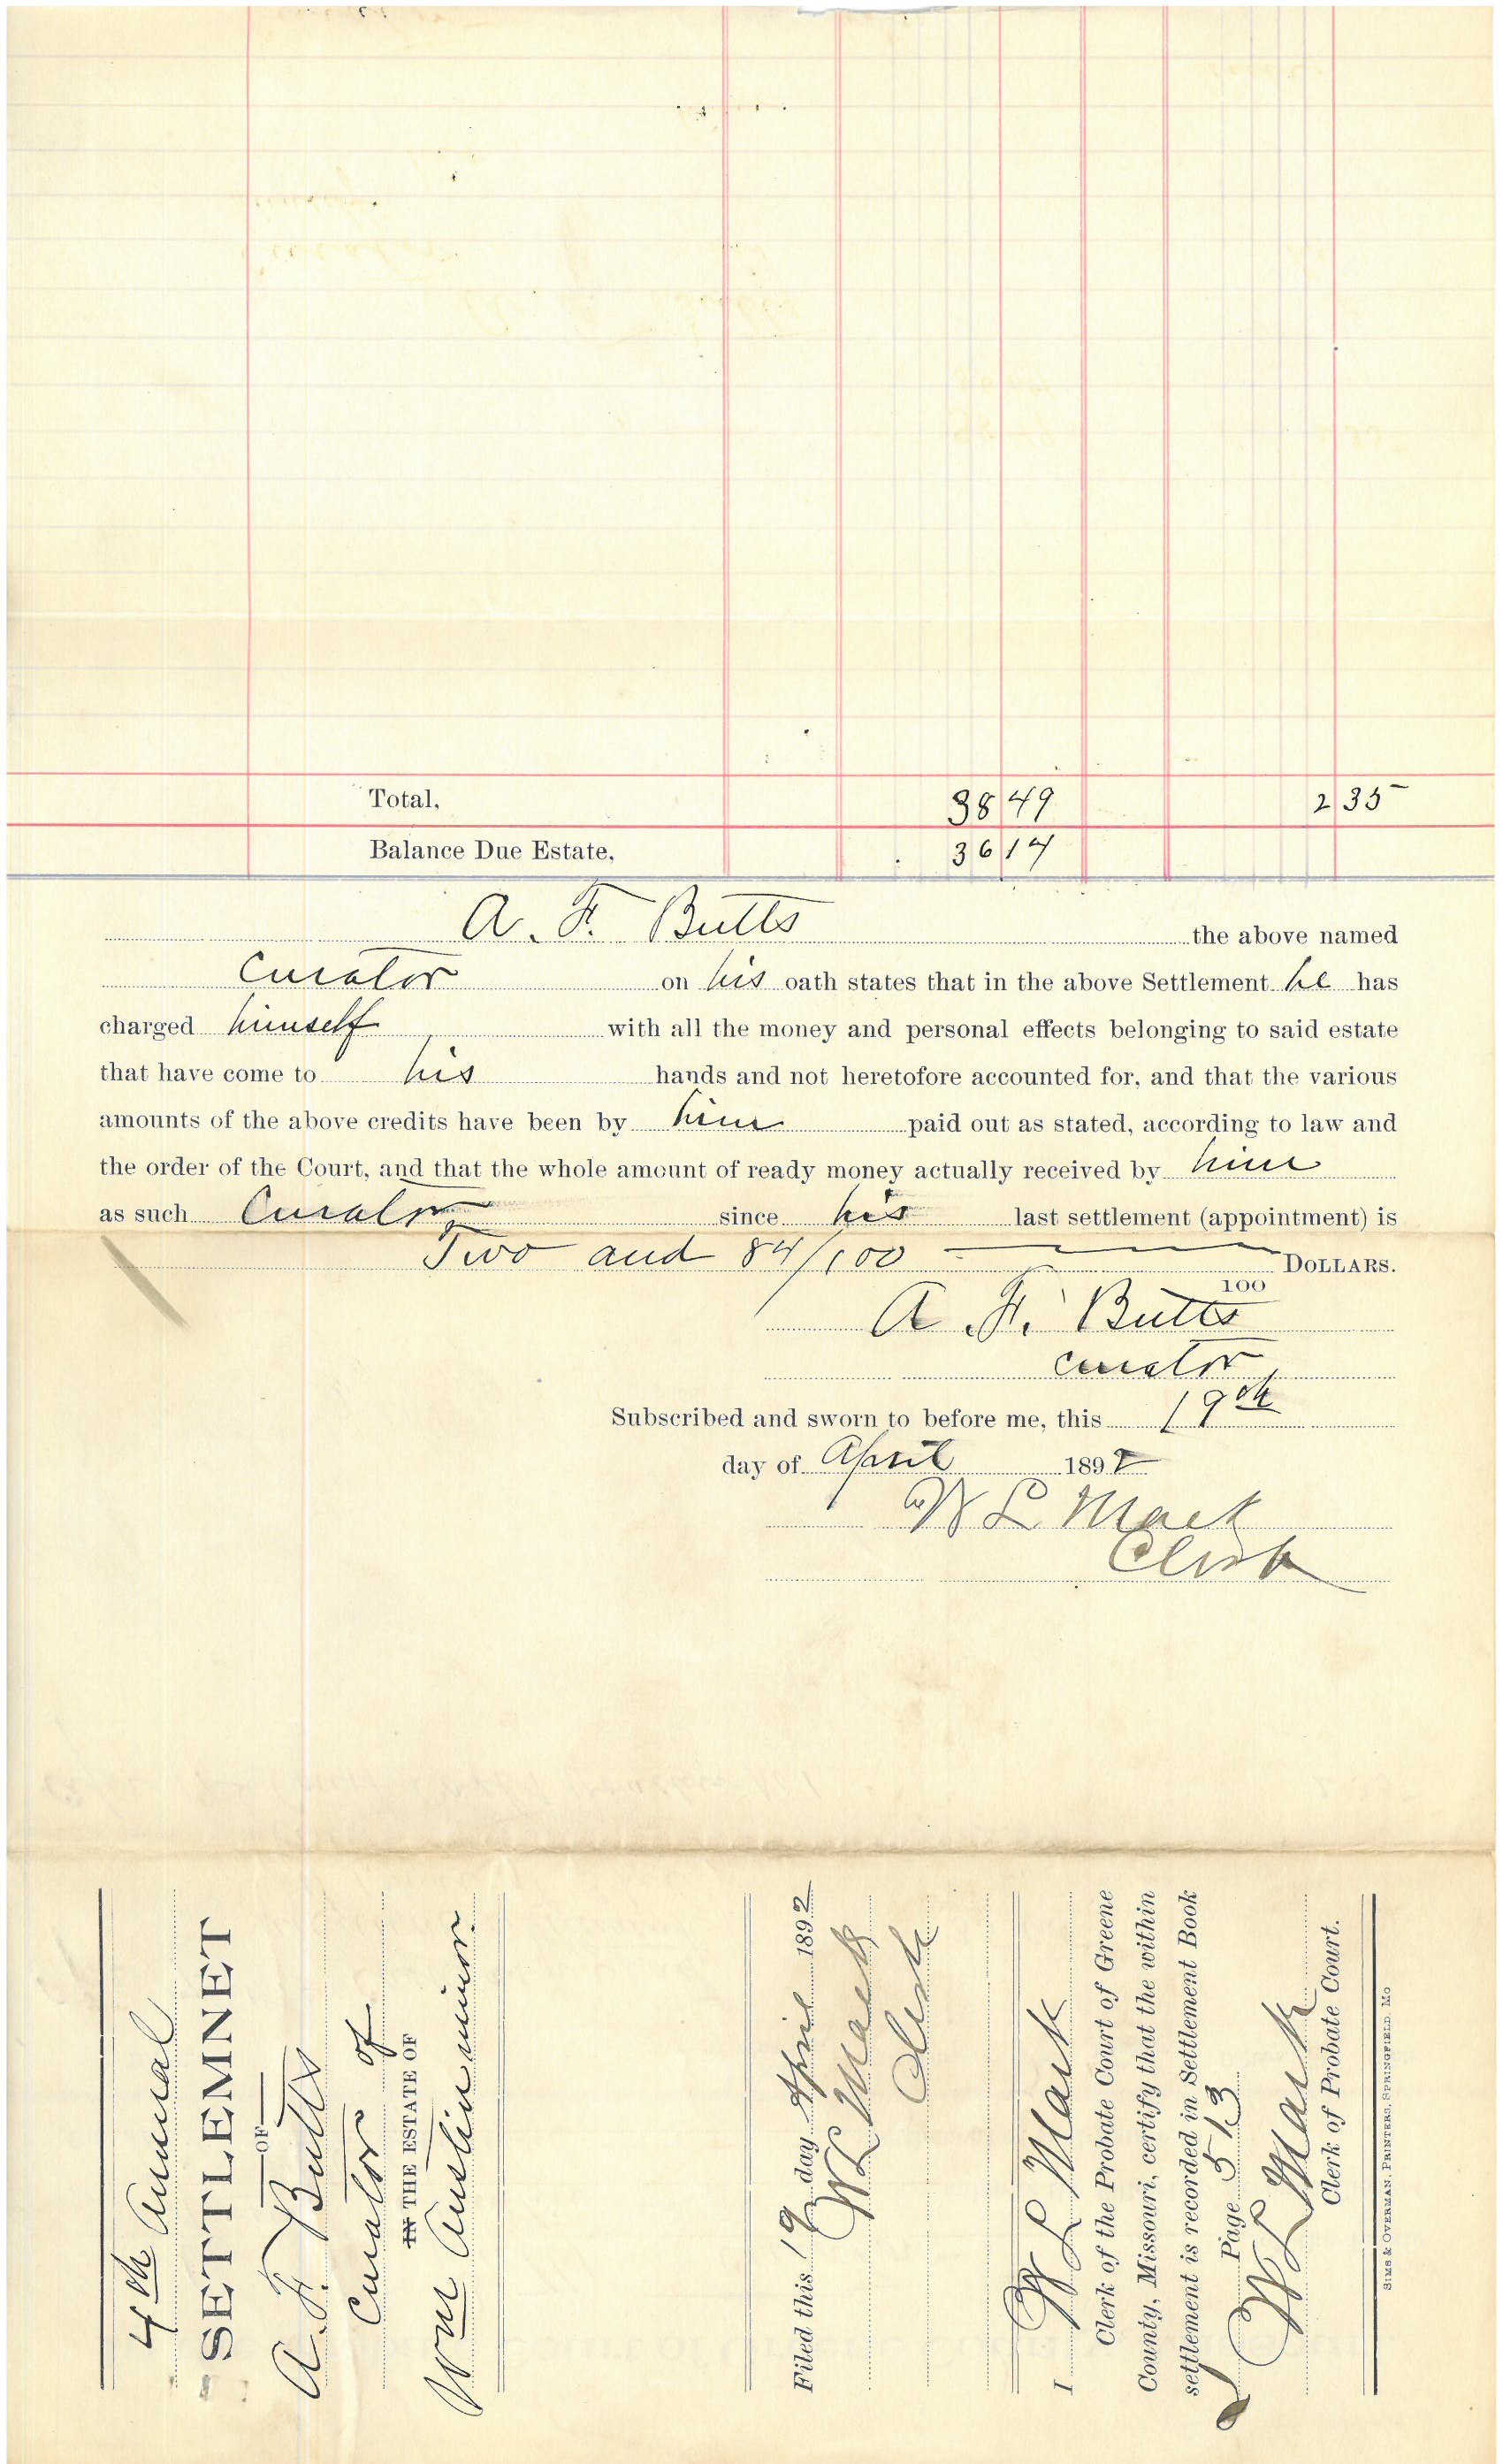 Total. 38 49 2 35
Balance Due Estate. 36 14
A. F. Butts the above named
Curator on his oath states that in the above Settlement he has
charged himself with all the money and personal effects belonging to said estate
that have come to his hands and not heretofore accounted for, and that the various
amounts of the above credits have been by him paid out as stated, according to law and
the order of the Court, and that the whole amount of ready money actually received by him
as such Curator since his last settlement (appointment) is
Two and 84/100 DOLLARS.
100
A. F. Butts
curator
Subscribed and sworn to before me, this 19th
day of April 1892
W L Mack
Clerk
4th Annual
SETTLEMNET
OF
A. F. Butts
Curator of
IN THE ESTATE OF
Wm Austin minor
Filed this 19 day April 1892
W L Mack
Clerk
I W L Mack
Clerk of the Probate Court of Greene
County, Missouri, certify that the within
settlement is recorded in Settlement Book
Page 513
W L Mack
Clerk of Probate Court.
SIMS & OVERMAN, PRINTERS, SPRINGFIELD, MO